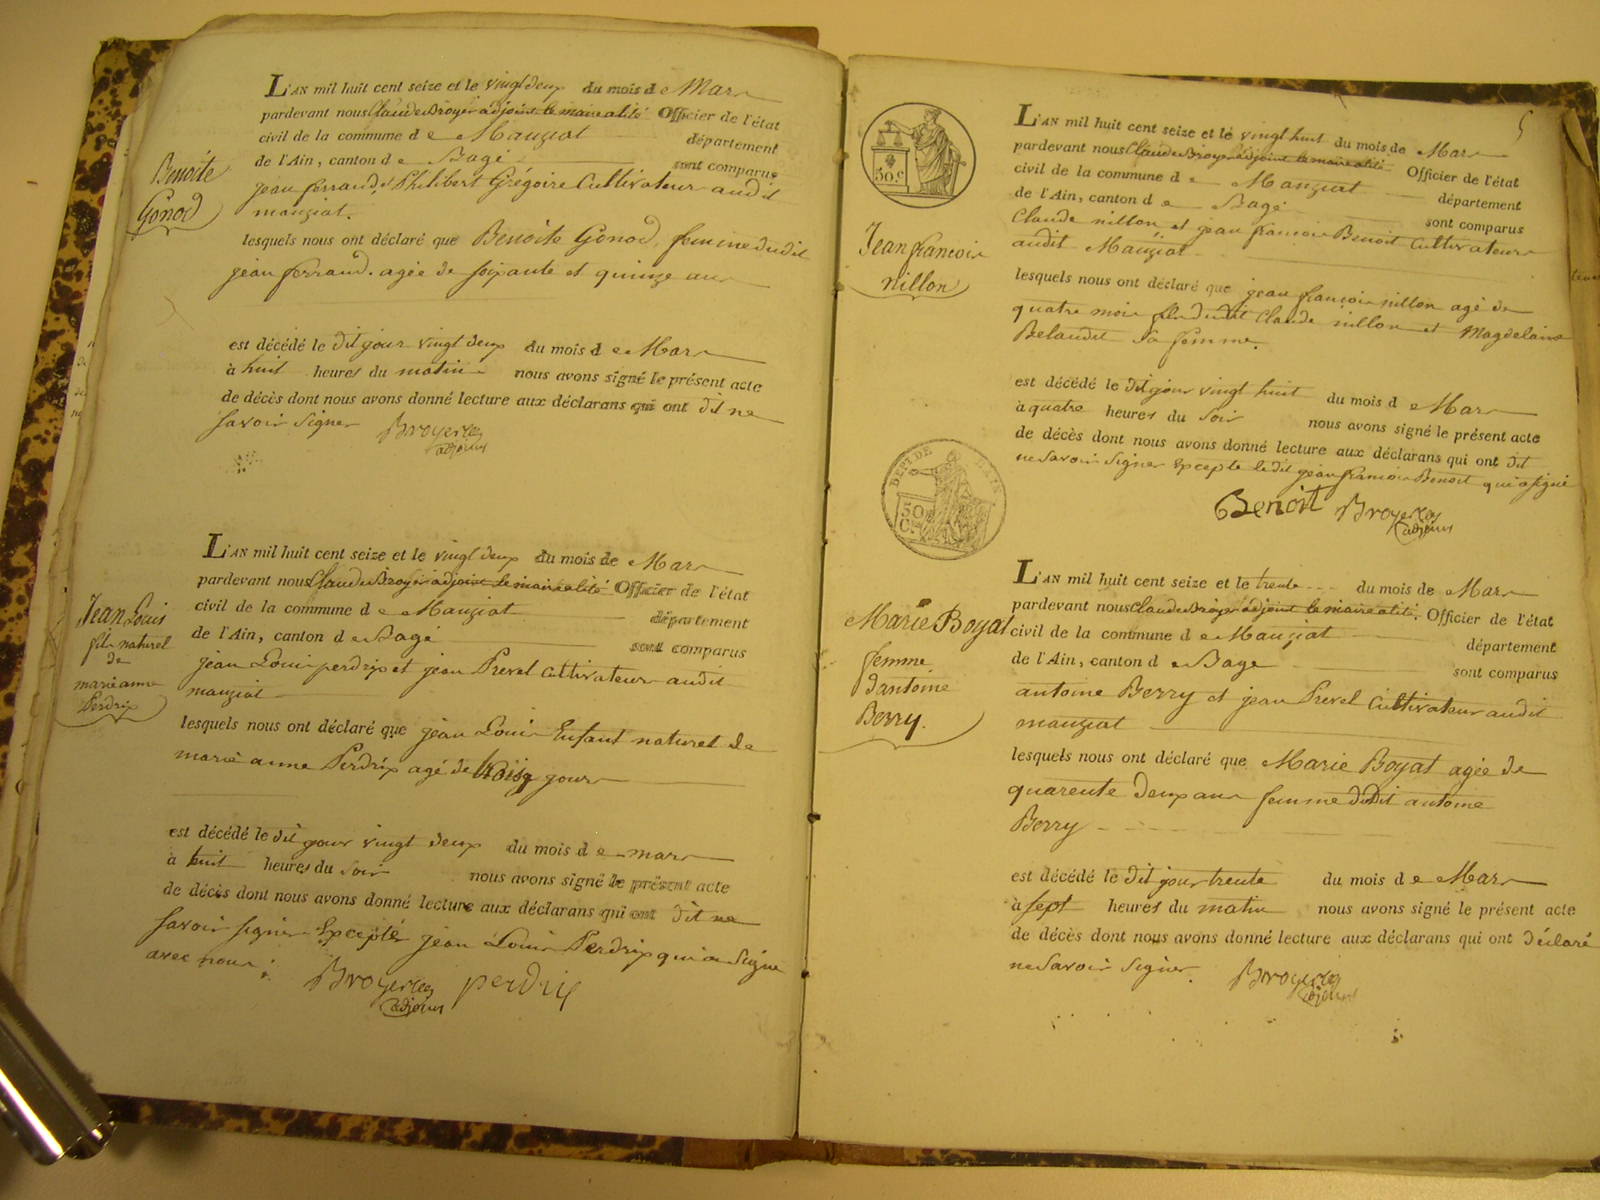 L'AN mil huit cent seize et le vingt deux du mois de Mars
pardevant nous Claude Broyer adjoint le maire alité Officier de l'état
civil de la commune d e Manziat département
de l'Ain, canton d e Bagé sont comparus
jean ferrand, et Philibert Grégoire Cultivateurs audit
manziat.
Benoite
Gonod
lesquels nous ont déclaré que Benoite Gonod, femme dudit
jean ferrand. agée de soixante et quinze ans
est décédé le dit jour vingt deux du mois d e Mars
à huit heures du matin nous avons signé le présent acte
de décès dont nous avons donné lecture aux déclarans qui ont dit ne
savoir signer Broyer
adjoint
L'AN mil huit cent seize et le vingt deux du mois de Mars
pardevant nous Claude Broyer adjoint le maire alité Officier de l'état
civil de la commune d e Manziat département
de l'Ain, canton d e Bagé sont comparus
jean Louis perdrix et jean Prevel Cultivateurs audit
manziat
Jean Louis
fils naturel
de
marie anne
Perdrix
lesquels nous ont déclaré que jean Louis Enfant naturel de
marie anne Perdrix agé de trois jours
est décédé le dit jour vingt deux du mois d e mars
à huit heures du soir nous avons signé le présent acte
de décès dont nous avons donné lecture aux déclarans qui ont dit ne
savoir signer Excepté jean Louis Perdrix qui a signé
avec nous. Broyer perdrix
adjoint
5
L'AN mil huit cent seize et le vingt huit du mois de Mars
pardevant nous Claude Broyer adjoint le maire alité Officier de l'état
civil de la commune d e Manziat département
de l'Ain, canton d e Bagé sont comparus
Claude nillon et jean françois Benoit Cultivateurs
audit Manziat
50 c
Jean françois
nillon
lesquels nous ont déclaré que jean françois nillon agé de
quatre mois fils dudit Claude nillon et Magdelaine
Belaudit sa femme.
est décédé le dit jour vingt huit du mois d e Mars
à quatre heures du soir nous avons signé le présent acte
de décès dont nous avons donné lecture aux déclarans qui ont dit
ne savoir signer Excepte le dit jean françois Benoit qui a signé
Benoit Broyer
adjoint
DEPT. DE L'AIN
50
C.
L'AN mil huit cent seize et le trente du mois de Mars
pardevant nous Claude Broyer adjoint le maire alité. Officier de l'état
civil de la commune d e Manziat département
de l'Ain, canton d e Bage sont comparus
antoine Berry et jean Prevel Cultivateurs audit
manziat
Marie Boyat
femme
d'antoine
Berry.
lesquels nous ont déclaré que Marie Boyat agée de
quarente deux ans femme dudit antoine
Berry
est décédé le dit jour trente du mois d e Mars
à sept heures du matin nous avons signé le présent acte
de décès dont nous avons donné lecture aux déclarans qui ont déclaré
ne savoir signer. Broyer
adjoint